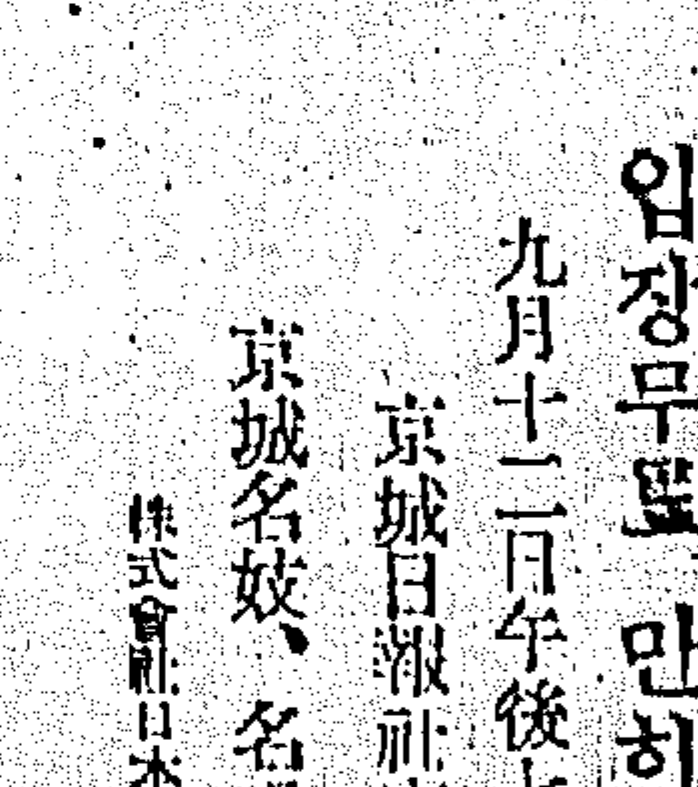 입장무료 만히
九月十二日午後七
京城日報社
京城名妓、名
株式會社日本